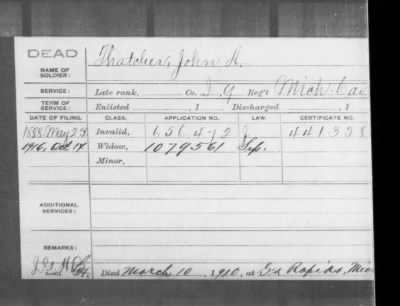 DEAD
NAME OF SOLDIER: Thatcher, John H.
SERVICE: Late rank, Co. I, 9 Reg't Mich. Cav
TERM OF SERVICE: Enlisted , 1 Discharged , 1
DATE OF FILING. CLASS. APPLICATION NO. LAW. CERTIFICATE NO.
1888, May 23 Invalid, 656472 441358
1916, Oct 14 Widow, 1079561 Sep.
Minor,
ADDITIONAL SERVICES:
REMARKS:
Died March 10 1910, at Gd Rapids, Mich